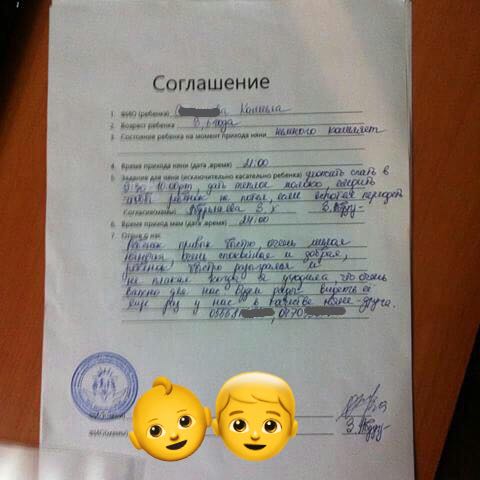 Соглашение
1. ФИО (ребенка) С ва Камила
2. Возраст ребенка 3,6 года
3. Состояние ребенка на момент прихода няни немного кашляет
4. Время прихода няни (дата ,время) 21:00
5. Задание для няни (исключительно касательно ребенка) уложить спать в
9:30-10.00, дать теплое молоко, следить
чтобы ребенок не потел, если вспотеет переодеть
Согласие(мамы) З. к
6. Время прихода мам (дата ,время) 24:00
7. Отзыв о нас
Ребенок привык быстро, очень милая
няня, очень спокойная и добрая,
ребенок быстро разыгрался и
не плакал когда я уходила что очень
важно для нас будем рады видеть её
еще раз у нас в качестве няни-друга.
0556 , 0770